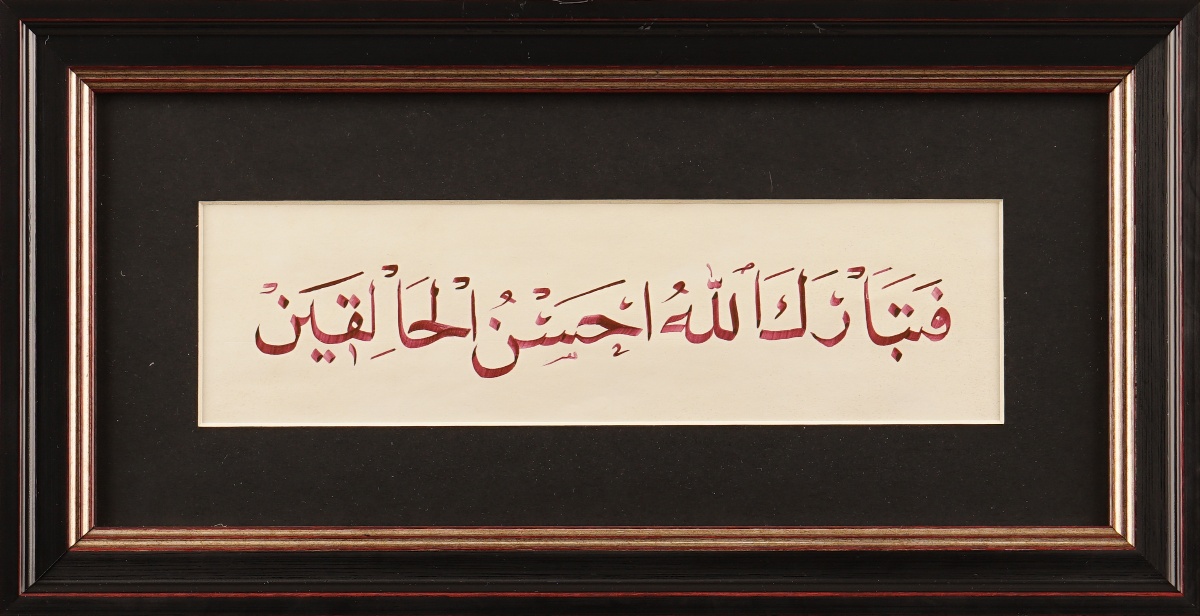 فَتَبَارَكَ اللّٰهُ اَحْسَنُ الْخَالِقٖينَ